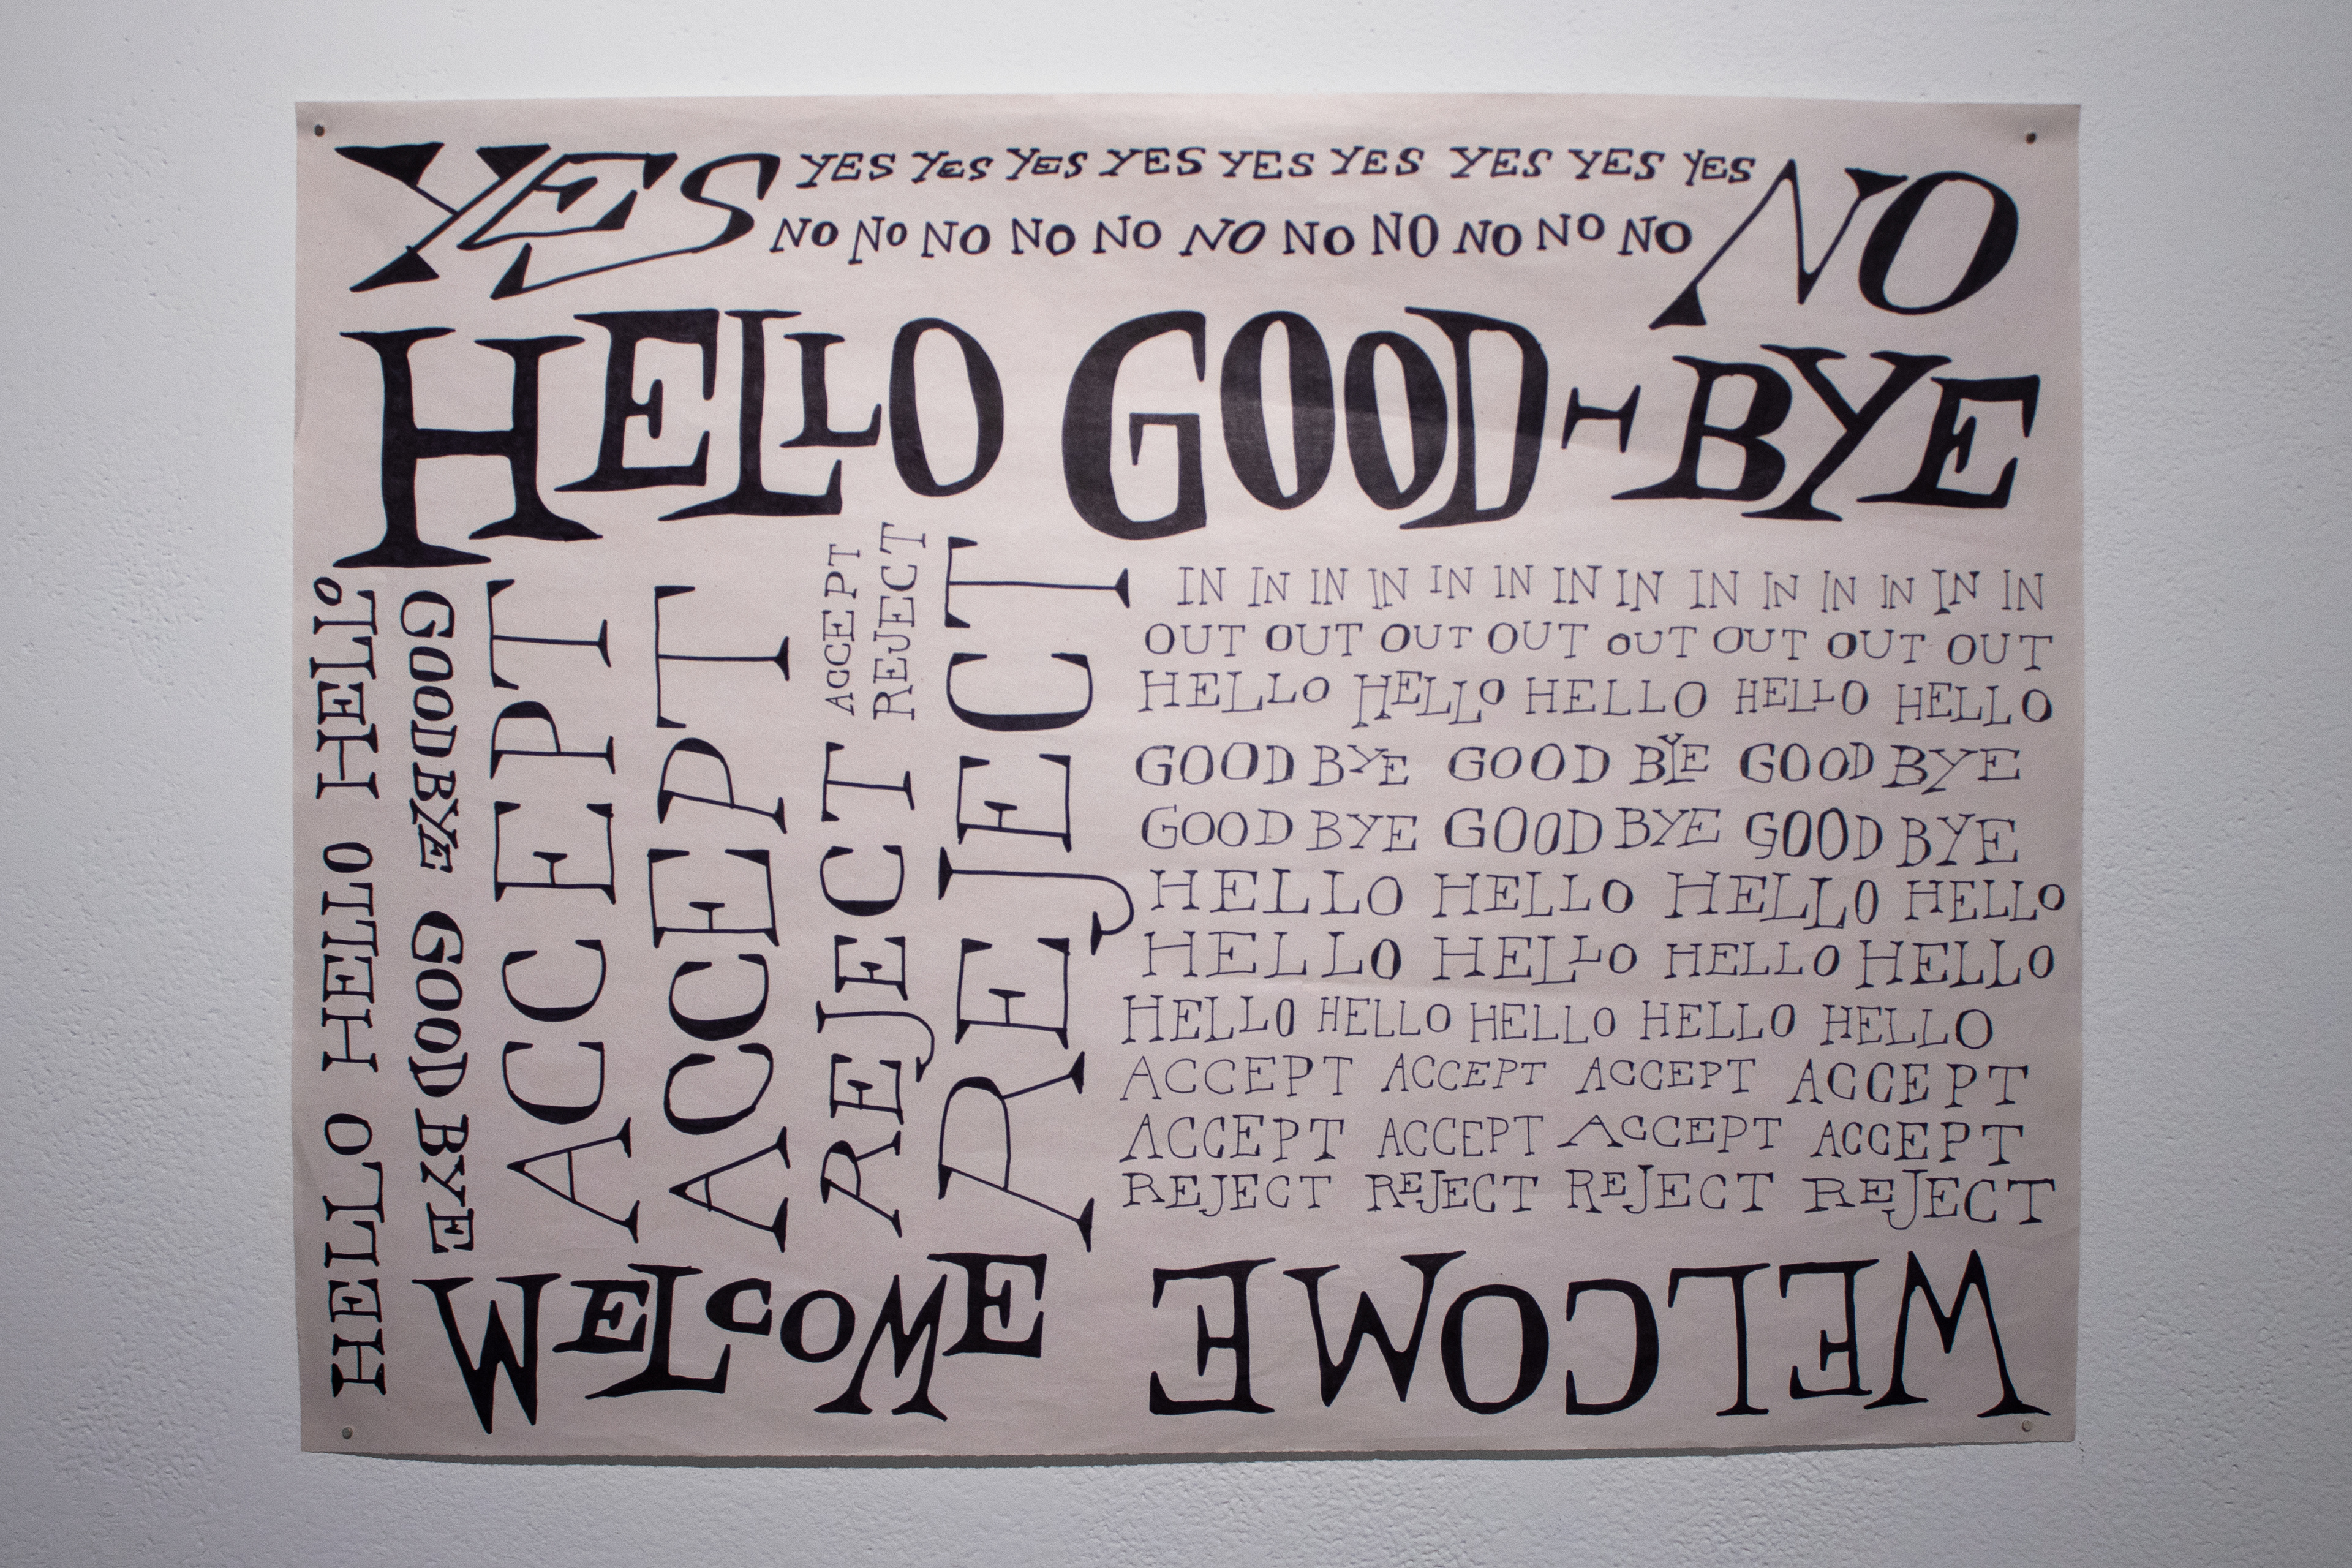 YES YES YES YES YES YES YES YES YES YES NO
NO NO NO NO NO NO NO NO NO NO NO
HELLO GOOD-BYE
HELLO HELLO HELLO
GOODBYE GOOD BYE
ACCEPT
ACCEPT
ACCEPT
REJECT
REJECT
REJECT
IN IN IN IN IN IN IN IN IN IN IN IN IN IN
OUT OUT OUT OUT OUT OUT OUT OUT
HELLO HELLO HELLO HELLO HELLO
GOOD BYE GOOD BYE GOOD BYE
GOOD BYE GOOD BYE GOOD BYE
HELLO HELLO HELLO HELLO
HELLO HELLO HELLO HELLO
HELLO HELLO HELLO HELLO HELLO
ACCEPT ACCEPT ACCEPT ACCEPT
ACCEPT ACCEPT ACCEPT ACCEPT
REJECT REJECT REJECT REJECT
WELCOME WELCOME